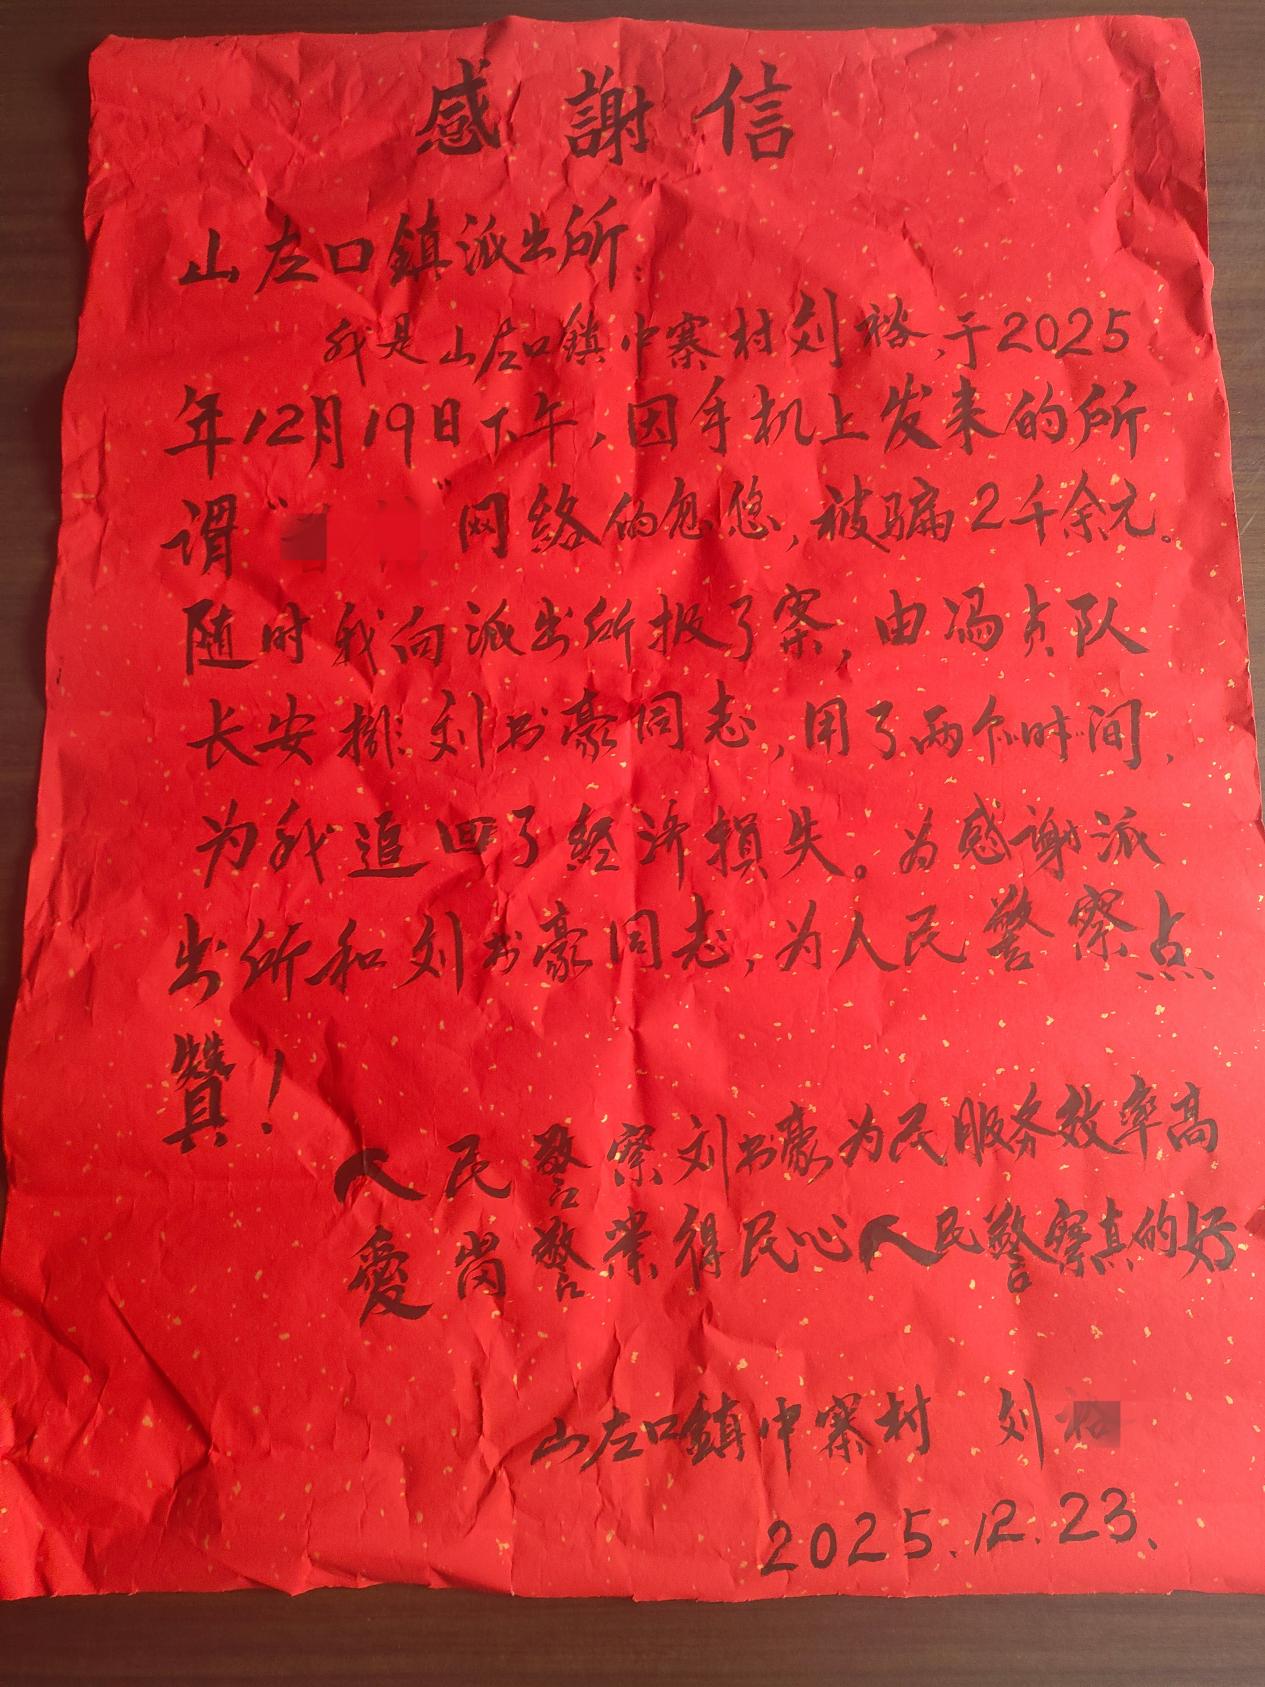 感謝信
山左口鎮派出所:
我是山左口鎮中寨村刘裕,于2025
年12月19日下午,因手机上发来的所
谓“ ”网络的忽悠,被骗2千余元。
随时我向派出所报了案,由冯贞队
长安排刘书豪同志,用了两个时间,
为我追回了经济損失。为感谢派
出所和刘书豪同志,为人民警察点
赞!
人民警察刘书豪为民服务效率高
愛岗警業得民心人民警察真的好
山左口鎮中寨村 刘
2025.12.23.